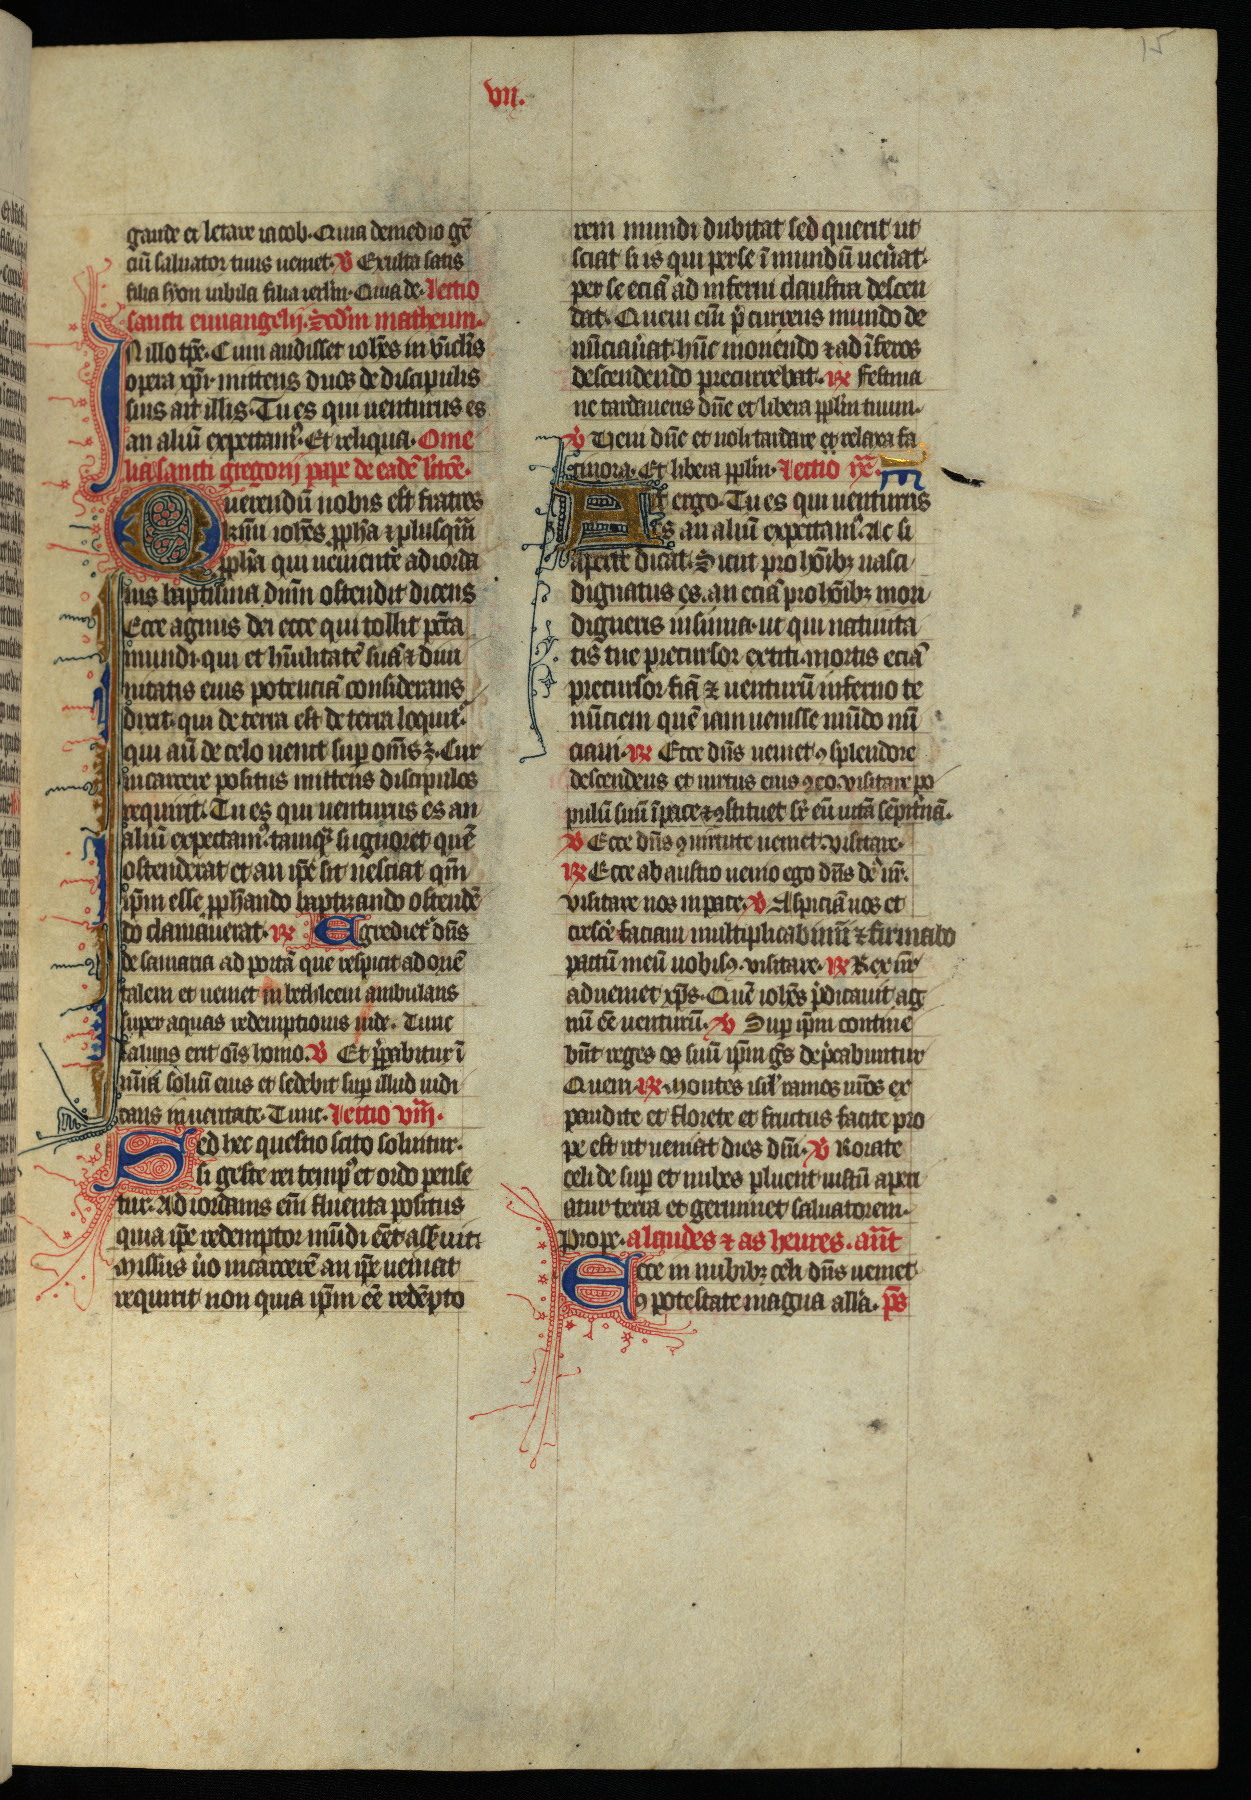 15
vii.
gaude et letare iacob. Quia de medio gē
ciū saluator tuus ueniet. V Exulta satis
filia syon iubila filia ierlm̄. Quia de. Lectio
sancti euuangelij. scd̄m matheum.
IN illo tp̄e. Cum audisset ioh̄es in vīclis
opera xpī. mittens duos de discipulis
suis ait illis. Tu es qui uenturus es
an aliū expectam᷒. Et reliqua. Ome
lia sancti gregorij pape de eadē lectōe.
Querendū nobis est fratres
k̄mi ioh̄es pph̄a ⁊ plusqm̄
pph̄a qui uenientē ad iorda
nis baptisma dn̄m ostendit dicens
Ecce agnus dei ecce qui tollit pc̄ta
mundi. qui et hūilitatē suā ⁊ diui
nitatis eius potenciā considerans
dixit. qui de terra est de terra loquit᷑.
qui aū de celo uenit sup om̄s ē. Cur
in carcere positus mittens discipulos
requirit. Tu es qui uenturus es an
aliū expectam᷒. tamqᷓ si ignoret quē
ostenderat et an ip̄e sit nesciat qm̄
ip̄m esse pph̄ando baptizando ostendē
do clamauerat. R Egrediet᷑ dn̄s
de samaria ad portā que respicit ad oriē
talem et ueniet in bethleem ambulans
super aquas redemptionis iude. Tunc
saluus erit ōis homo. V Et pͥpabitur ī
mīa soliū eius et sedebit sup illud iudi
cans in ueritate. Tunc. Lectio viii.
Sed hec questio scito soluitur.
si geste rei temp᷒ et ordo pense
tur. Ad iordanis eīm fluenta positus
quia ip̄e redemptor mūdi eēt asseruit
Missus ū̓o in carcerē an ip̄e ueniat
requirit non quia ip̄m eē redēpto
rem mundi dubitat sed querit ut
sciat si is qui per se ī mundū ueūat.
per se eciā ad inferni claustra descen
dat. Quem eīm pͥcurrens mundo de
nūciaūat. hūc moriendo ⁊ ad īferos
descendendo precurrebat. R Festina
ne tardaueris dn̄e et libera pplm̄ tuum.
V Veni dn̄e et noli tardare et relaxa fa
cinora. Et libera pplm̄. Lectio ix.
Ait ergo. Tu es qui uenturus
es an aliū expectam᷒. Ac si
aperte dicat. Sicut pro hōibꝫ nasci
dignatus es. an eciā pro hōibꝫ mori
digneris insinua. ut qui natiuita
tis tue precursor extiti. mortis eciā
precursor fiā ⁊ uenturū inferno te
nūciem quē iam uenisse mūdo nū
ciaui. R Ecce dn̄s ueniet ꝯ splendore
descendens et uirtus eius ꝯ eo. visitare po
pulū suū ī pace ⁊ ꝯstituet sr̄ eū uitā sēpit̄nā.
V Ecce dn̄s ꝯ uirtute ueniet. visitare.
R Ecce ab austro uenio ego dn̄s de᷒ ur̄.
visitare uos in pace. V Aspiciā uos et
cresce᷑ faciam multiplicabimī ⁊ firmabo
pactū meū uobisꝯ. visitare. R Rex nr̄
adueniet xp̄s. Quē ioh̄es p̄dicauit ag
nū eē uenturū. V Sup ip̄m contine
būt reges os suū ip̄m gn̄s dep̄cabuntur
Quem. R Montes isrl̄ ramos ur̄os ex
pandite et florete et fructus facite pro
pe est ut ueniat dies dn̄i. V Rorate
celi de sup et nubes pluent iustū aperi
atur terra et germinet saluatorem.
Prope. a laudes ⁊ as heures. añt
Ecce in nubibꝫ celi dn̄s ueniet
ꝯ potestate magna all̄a. p̄s